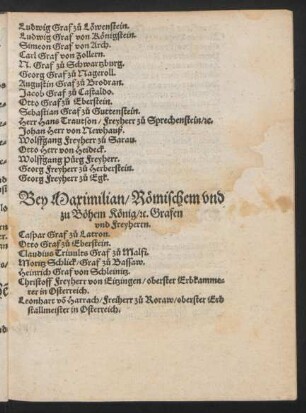 Ludwig Graf zů Löwenstein.
Ludwig Graf von Königstein.
Simeon Graf von Arch.
Carl Graf von Zollern.
N. Graf zů Schwartzburg.
Georg Graf zů Nageroll.
Augustin Graf zů Brodran.
Jacob Graf zů Castaldo.
Otto Graf zů Eberstein.
Sebastian Graf zů Guttenstein.
Herr Hans Trautson / Freyherr zů Sprechenstein/ꝛc.
Johan Herr von Newhauß.
Wolffgang Freyherr zů Sarau.
Otto Herr von Heideck.
Wolffgang Pürg Freyherr.
Georg Freyherr zů Herberstein.
Georg Freyherr zů Egk.
Bey Maximilian / Römischem vnd
zu Böhem König/ꝛc. Grafen
vnd Freyherrn.
Caspar Graf zů Latron.
Otto Graf zů Eberstein.
Claudius Triuults Graf zů Malfi.
Moritz Schlick/ Graf zů Bassaw.
Heinrich Graf von Schleinitz.
Christoff Freyherr von Eitzingen / oberster Erbkamme-
rer in Osterreich.
Leonhart võ Harrach/ Freiherr zů Roraw/ oberster Erb
stallmeister in Osterreich.